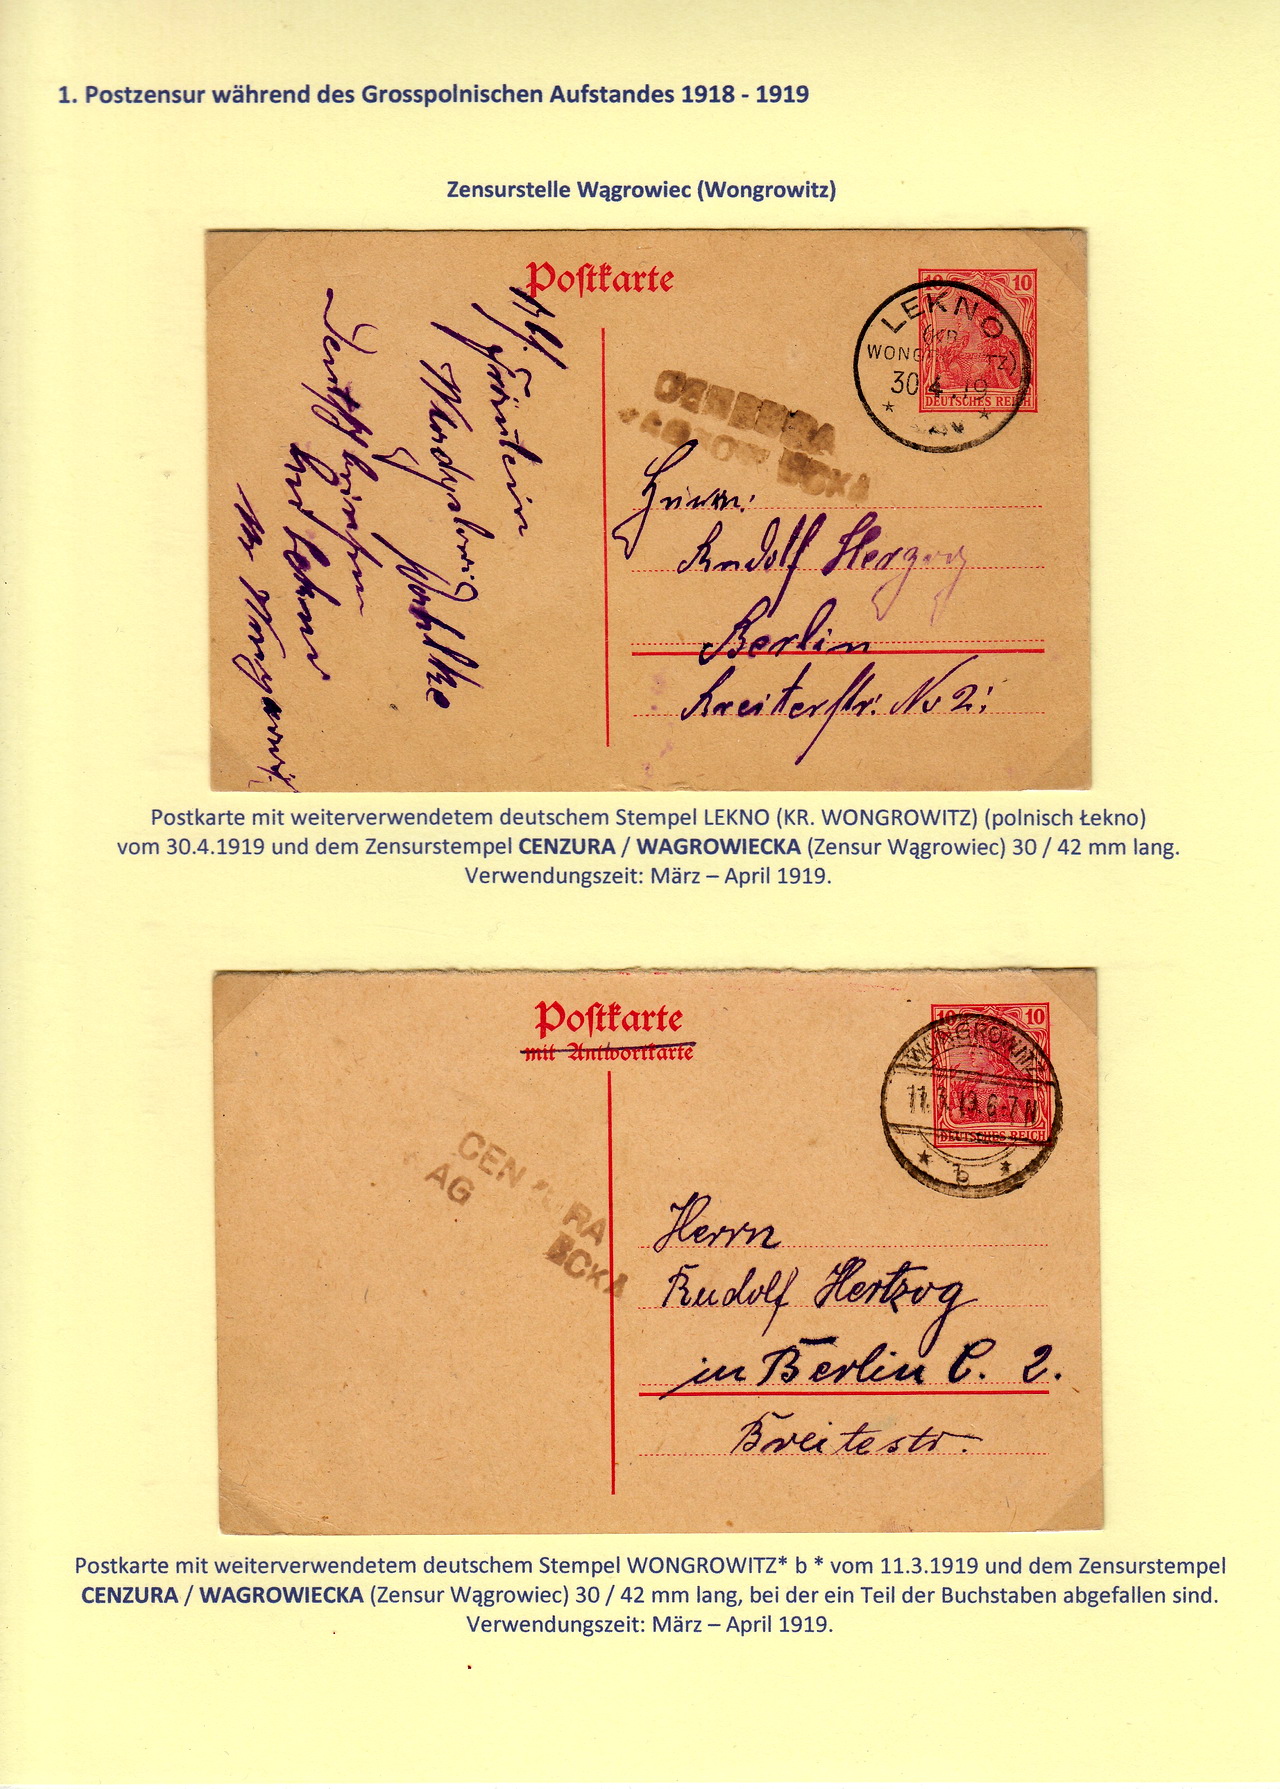 1. Postzensur während des Grosspolnischen Aufstandes 1918 - 1919
Zensurstelle Wągrowiec (Wongrowitz)
Postkarte
10 10
DEUTSCHES REICH
LEKNO
WONG TZ)
30 4 19
CEN RA
AGROW ECKA
Fräulein
Herrn:
Rudolf Herzog
Berlin
Breiterstr: No 2:
Postkarte mit weiterverwendetem deutschem Stempel LEKNO (KR. WONGROWITZ) (polnisch Łekno)
vom 30.4.1919 und dem Zensurstempel CENZURA / WAGROWIECKA (Zensur Wągrowiec) 30 / 42 mm lang.
Verwendungszeit: März – April 1919.
Postkarte
mit Antwortkarte
10 10
DEUTSCHES REICH
WONGROWITZ
11.3.19.6-7 N
* b *
CEN URA
AG ECKA
Herrn
Rudolf Hertzog
in Berlin C. 2.
Breitestr.
Postkarte mit weiterverwendetem deutschem Stempel WONGROWITZ* b * vom 11.3.1919 und dem Zensurstempel
CENZURA / WAGROWIECKA (Zensur Wągrowiec) 30 / 42 mm lang, bei der ein Teil der Buchstaben abgefallen sind.
Verwendungszeit: März – April 1919.